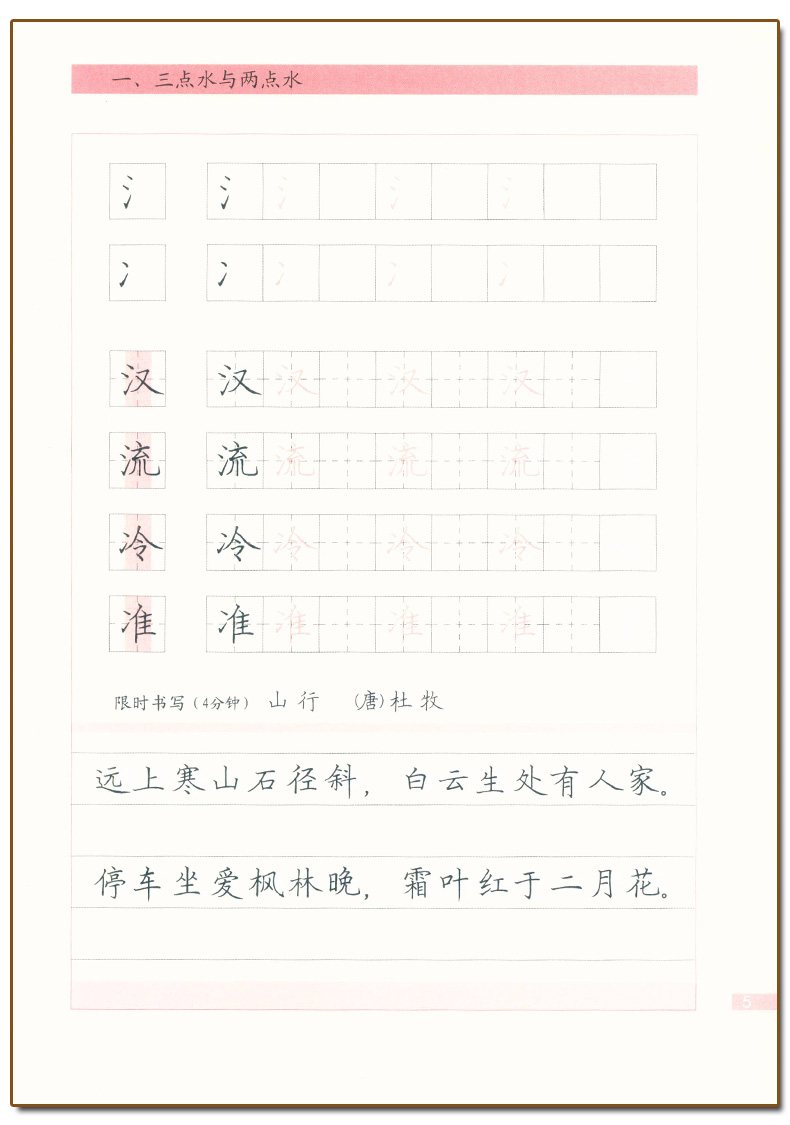 一、三点水与两点水
氵 氵 氵 氵 氵
冫 冫 冫 冫 冫
汉 汉 汉 汉 汉
流 流 流 流 流
冷 冷 冷 冷 冷
准 准 准 准 准
限时书写（4分钟） 山行 （唐）杜牧
远上寒山石径斜，白云生处有人家。
停车坐爱枫林晚，霜叶红于二月花。
5